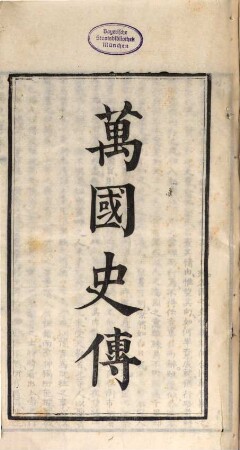 Bayerische
Staatsbibliothek
München
萬國史傳